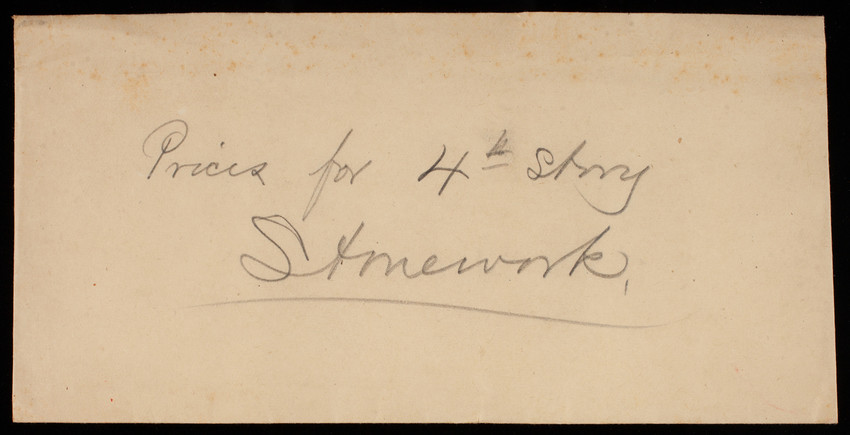 Prices for 4th Story
Stonework,